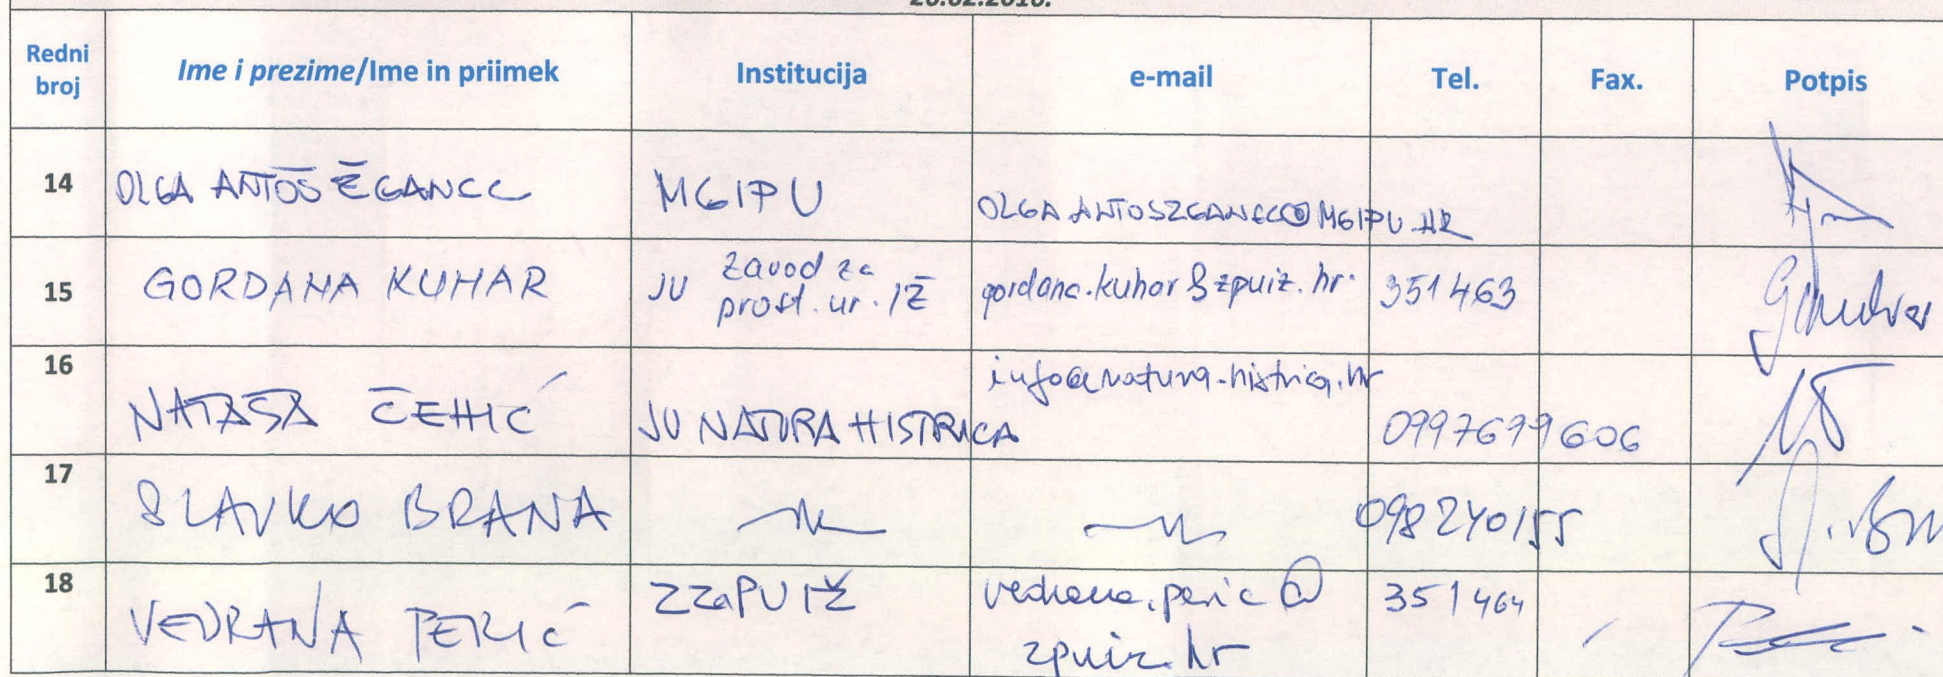 Redni broj Ime i prezime/Ime in priimek Institucija e-mail Tel. Fax. Potpis
14 OLGA ANTOŠ ŽGANEC MGIPU OLGA.ANTOSZGANEC@MGIPU.HR
15 GORDANA KUHAR JU zavod za prost. ur. IŽ gordana.kuhar@zpuiz.hr 351463
16 NATAŠA ČEHIĆ JU NATURA HISTRICA info@natura-histrica.hr 0997679606
17 SLAVKO BRANA 098240155
18 VEDRANA PERIĆ ZZaPU IŽ vedrana.peric@ zpuiz.hr 351464 /